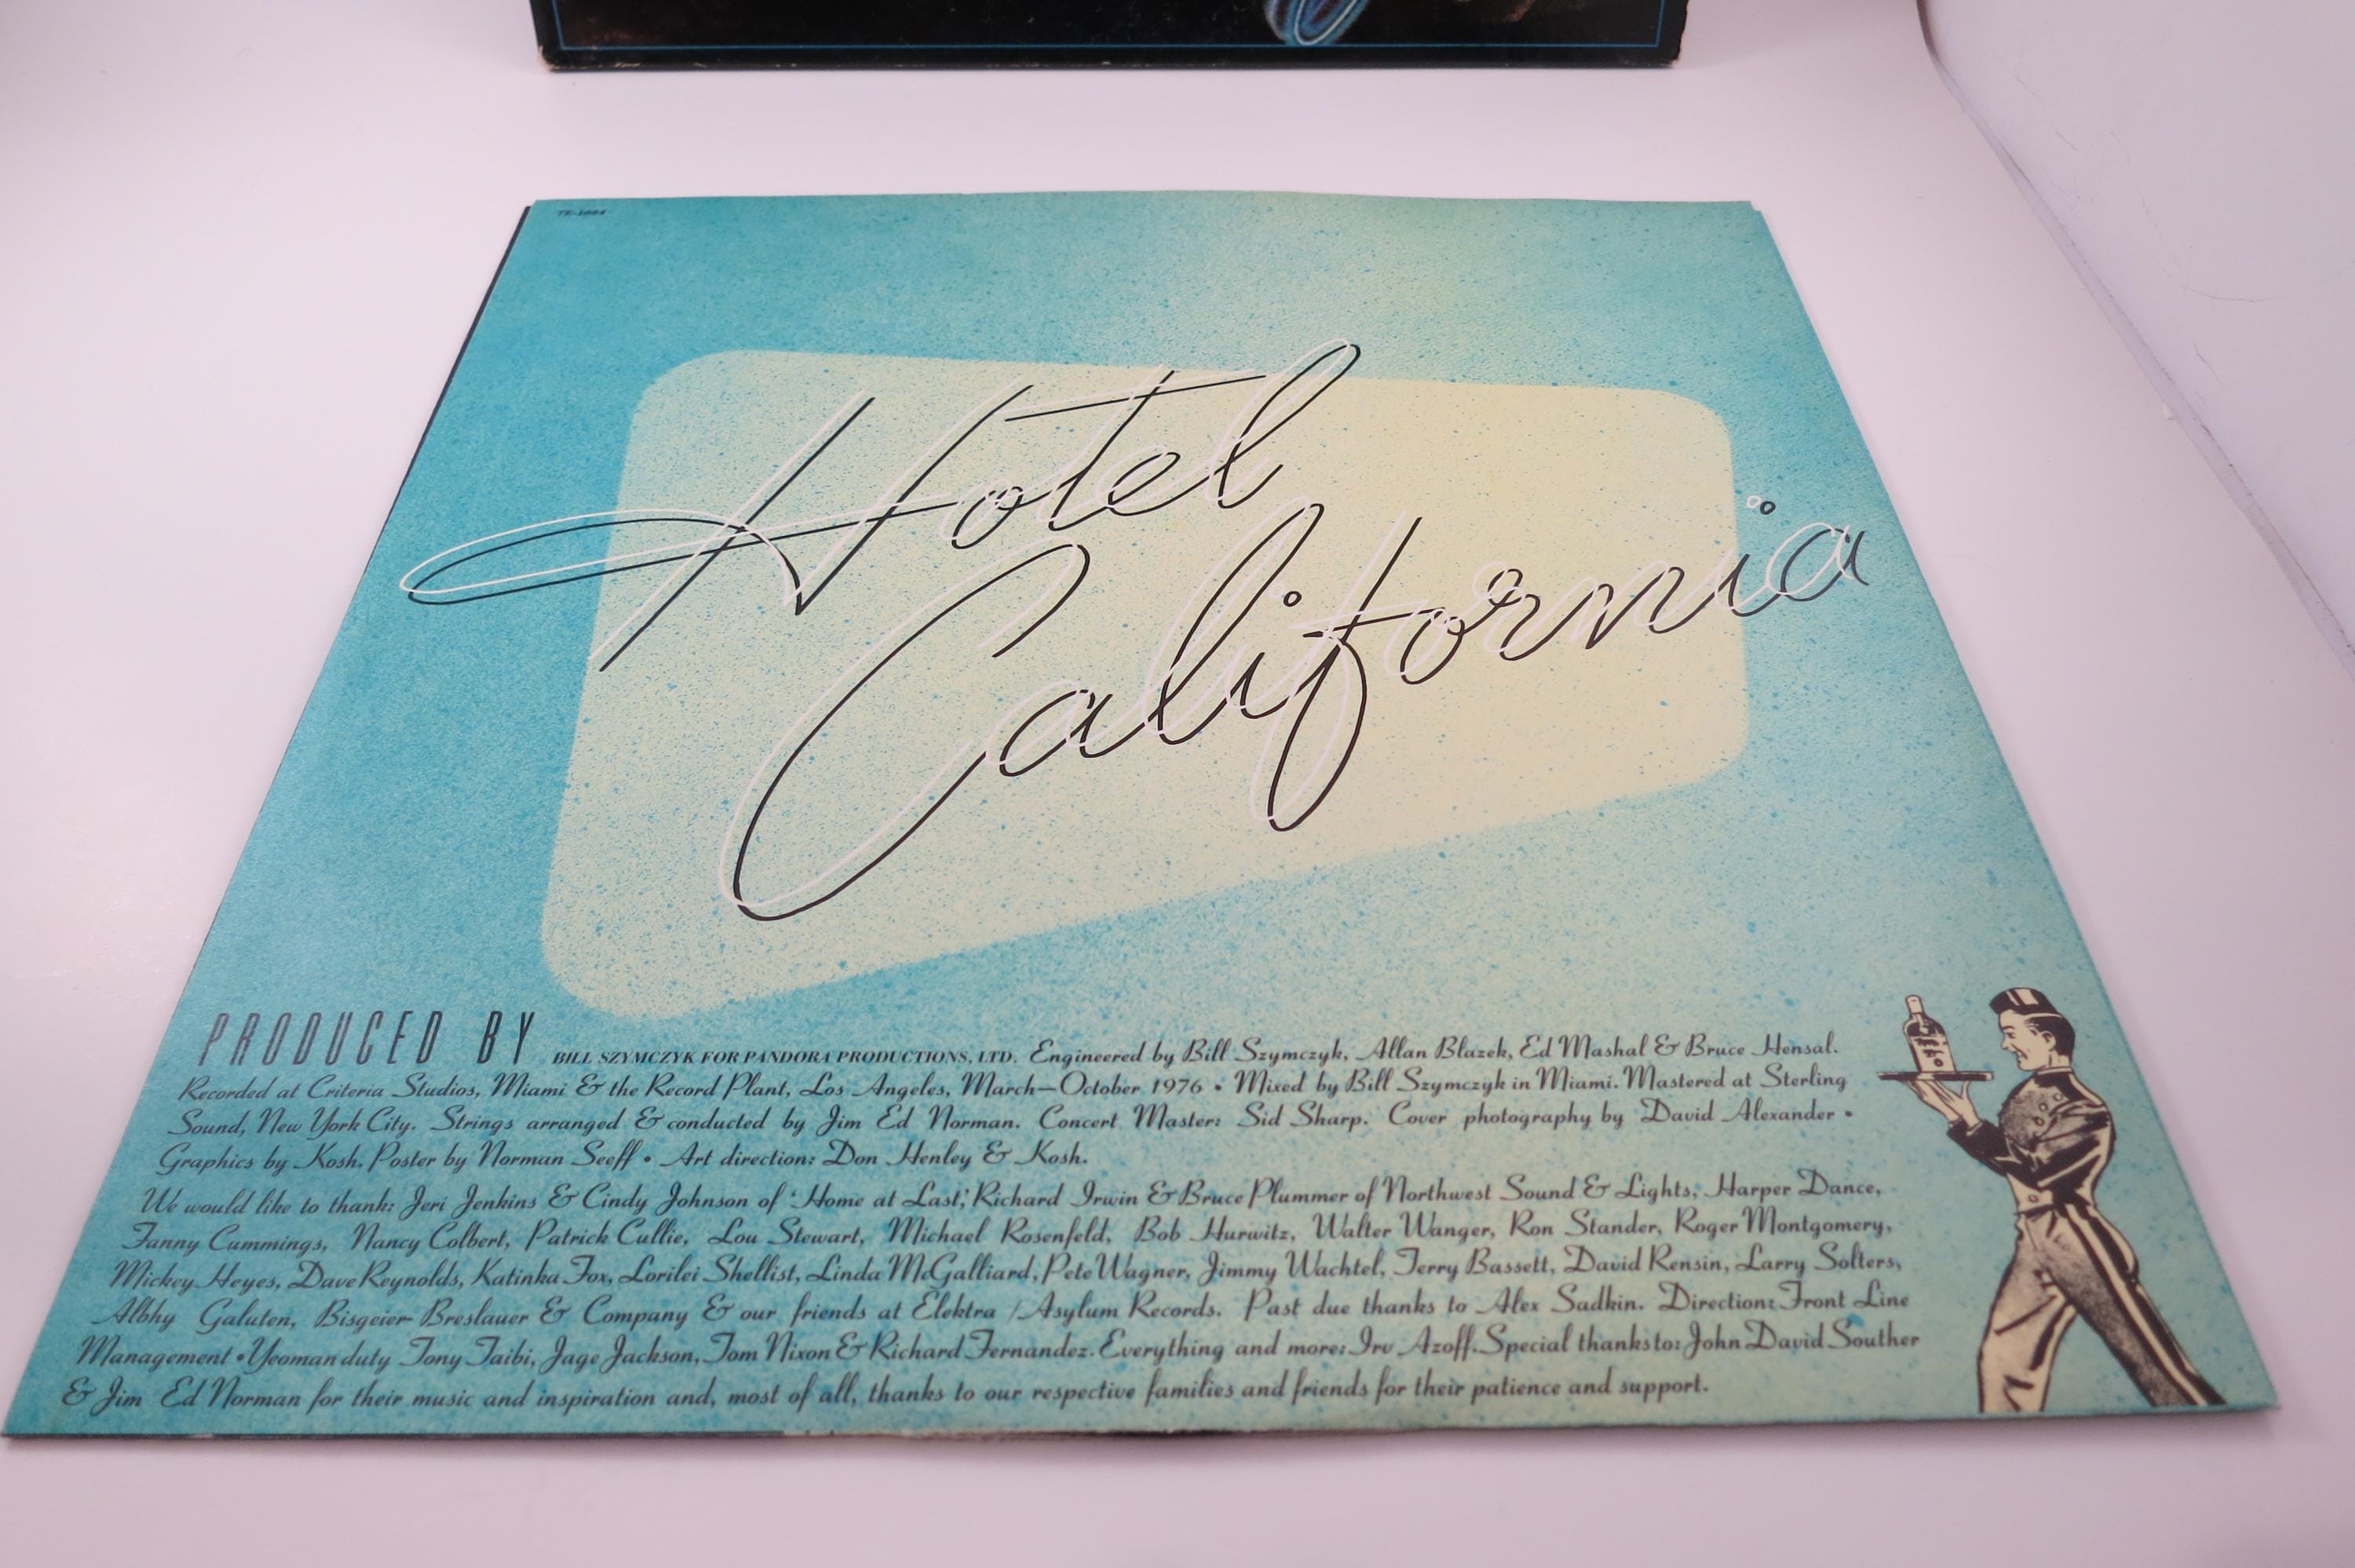 7E-1084
Hotel
California
PRODUCED BY BILL SZYMCZYK FOR PANDORA PRODUCTIONS, LTD. Engineered by Bill Szymczyk, Allan Blazek, Ed Mashal & Bruce Hensal.
Recorded at Criteria Studios, Miami & the Record Plant, Los Angeles, March—October 1976 • Mixed by Bill Szymczyk in Miami. Mastered at Sterling
Sound, New York City. Strings arranged & conducted by Jim Ed Norman. Concert Master: Sid Sharp. Cover photography by David Alexander •
Graphics by Kosh. Poster by Norman Seeff • Art direction: Don Henley & Kosh.
We would like to thank: Jeri Jenkins & Cindy Johnson of 'Home at Last,' Richard Irwin & Bruce Plummer of Northwest Sound & Lights, Harper Dance,
Fanny Cummings, Nancy Colbert, Patrick Cullie, Lou Stewart, Michael Rosenfeld, Bob Hurwitz, Walter Wanger, Ron Stander, Roger Montgomery,
Mickey Heyes, Dave Reynolds, Katinka Fox, Lorilei Shellist, Linda McGalliard, Pete Wagner, Jimmy Wachtel, Terry Bassett, David Rensin, Larry Solters,
Albhy Galuten, Bisgeier-Breslauer & Company & our friends at Elektra / Asylum Records. Past due thanks to Alex Sadkin. Direction: Front Line
Management • Yeoman duty Tony Taibi, Jage Jackson, Tom Nixon & Richard Fernandez. Everything and more: Irv Azoff. Special thanks to: John David Souther
& Jim Ed Norman for their music and inspiration and, most of all, thanks to our respective families and friends for their patience and support.